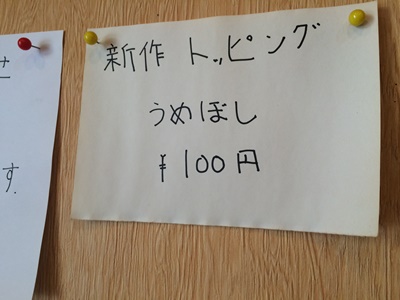 新作 トッピング
うめぼし
¥100円
せ
す.